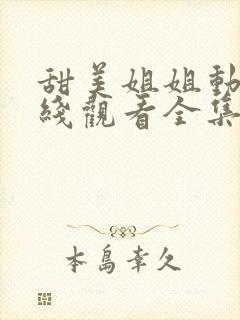 甜美姐姐動
綫觀看全集
本島幸久